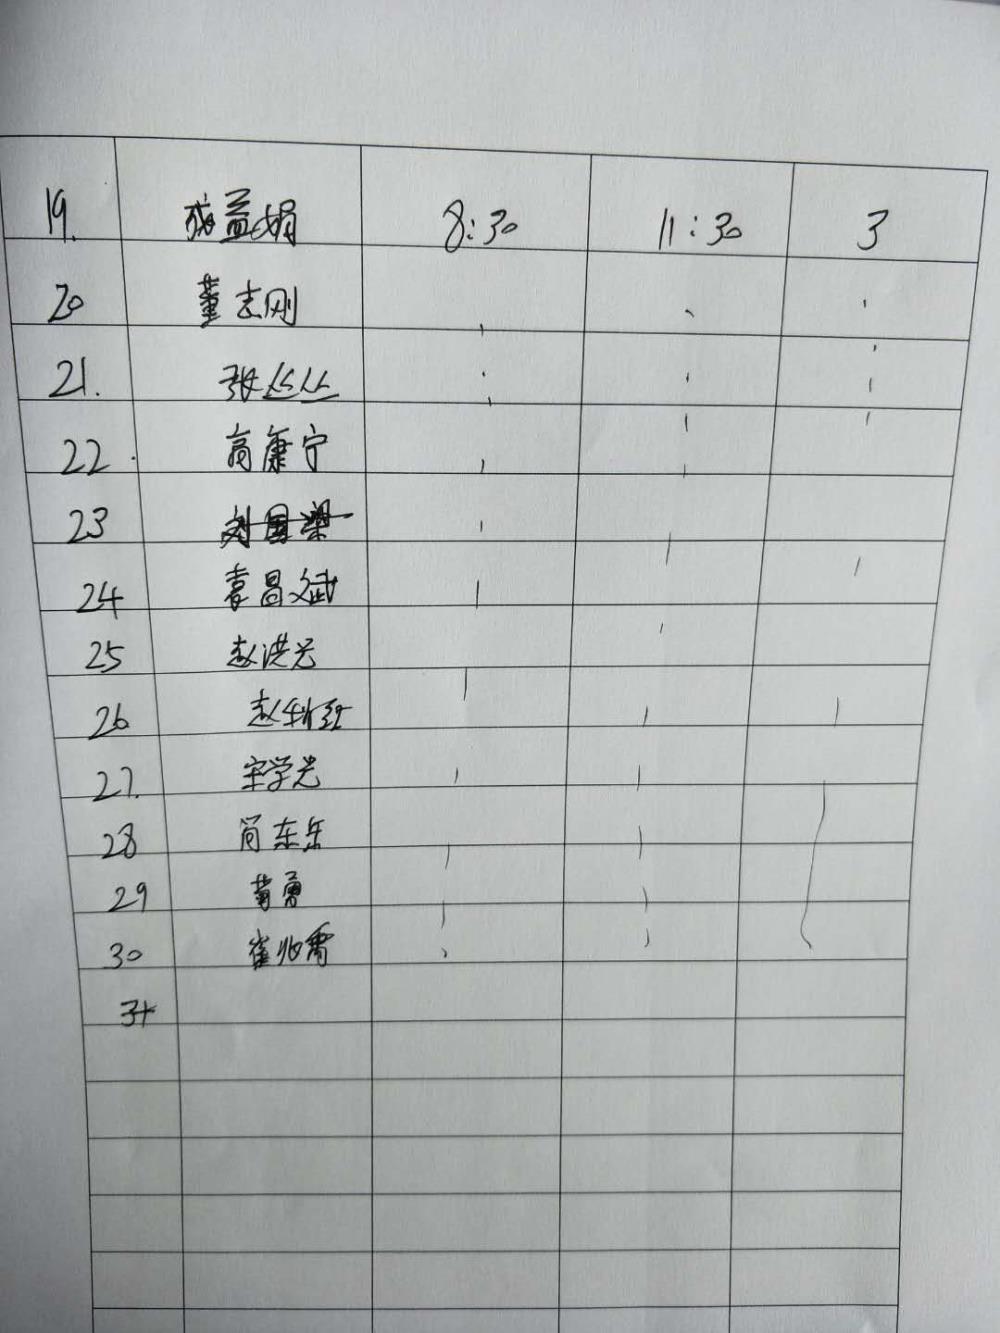 19. 成益娟 8:30 11:30 3
20 董志刚
21. 张丛丛
22. 高康宁
23 刘国梁
24 袁昌斌
25 赵洪光
26 赵
27. 宋学光
28 简东乐
29 勇
30 崔兆霄
31